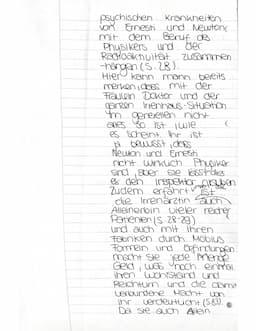 psychischen Krankheiten
von Ernesti und Newton
mit dem Beruf des
Physikers und der
Radioaktivität zusammen
-hängen (S. 28).
Hier kann mann bereits
merken, dass mit der
Fräulein Doktor und der
ganzen Irrenhaus-Situation
im generellen nicht
alles so ist, wie
es scheint. Ihr ist
ja bewusst, dass
Newton und Ernesti
nicht wirklich Physiker
sind, aber sie lässt das
den Inspektor glauben
Zudem erfährt
die Irrenärztin auch
Alleinerbin vieler reicher
Patienten (S. 28-29)
und auch mit ihren
Fabriken durch Möbius
Formeln und Erfindungen
macht sie jede Menge
Geld, was noch einmal
ihren Wohlstand und
Reichtum und die damit
verbundene Macht von
ihr verdeutlicht (S. 83).
Da sie auch allen